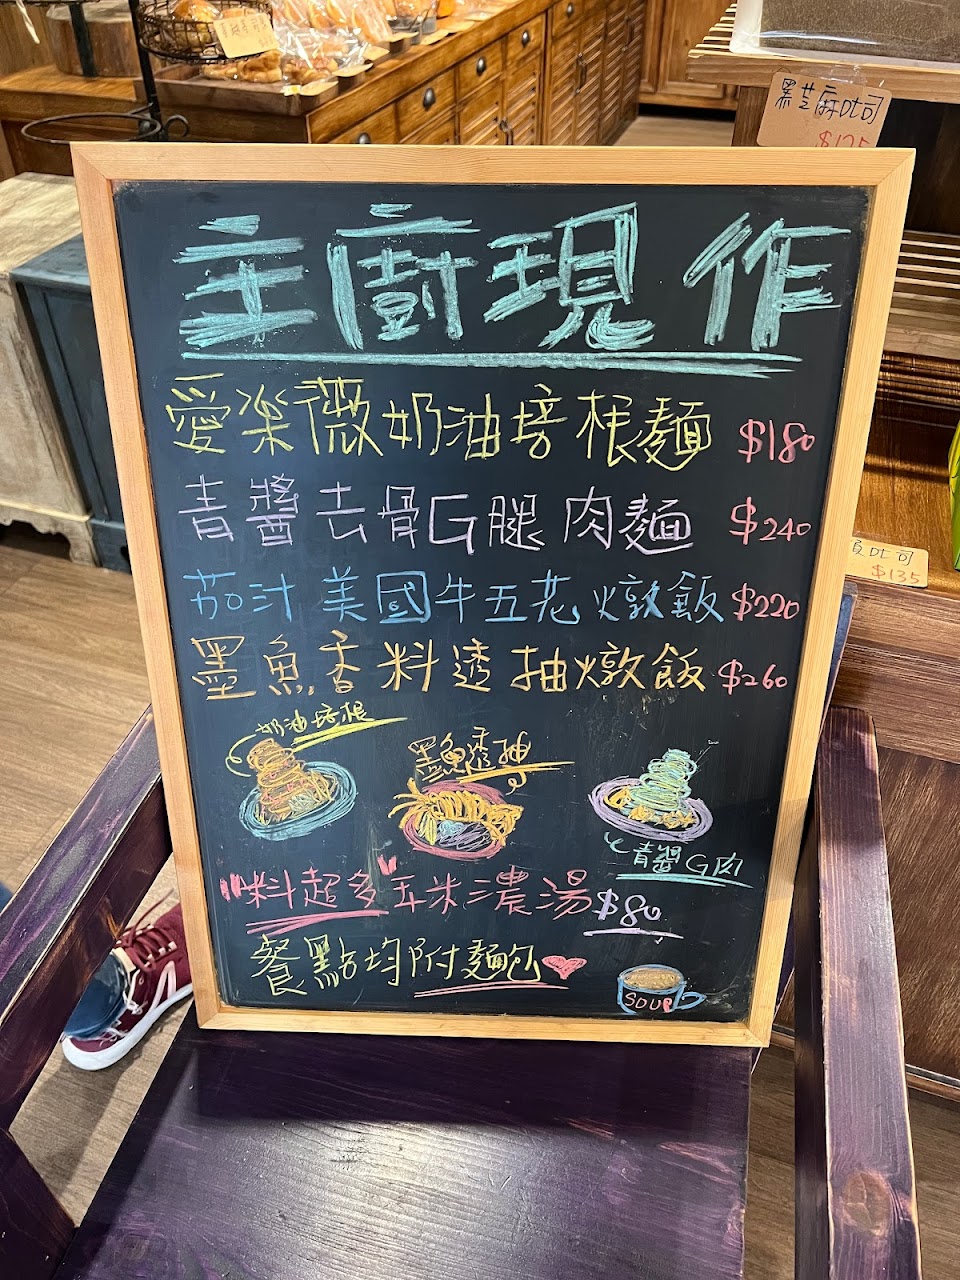 黑芝麻吐司
$125
主廚現作
愛樂薇奶油培根麵 $180
青醬去骨G腿肉麵 $240
茄汁美國牛五花燉飯 $220
墨魚香料透抽燉飯 $260
奶油培根
墨魚透抽
青醬G肉
"料超多"玉米濃湯 $80
餐點均附麵包
SOUP
吐司
$135